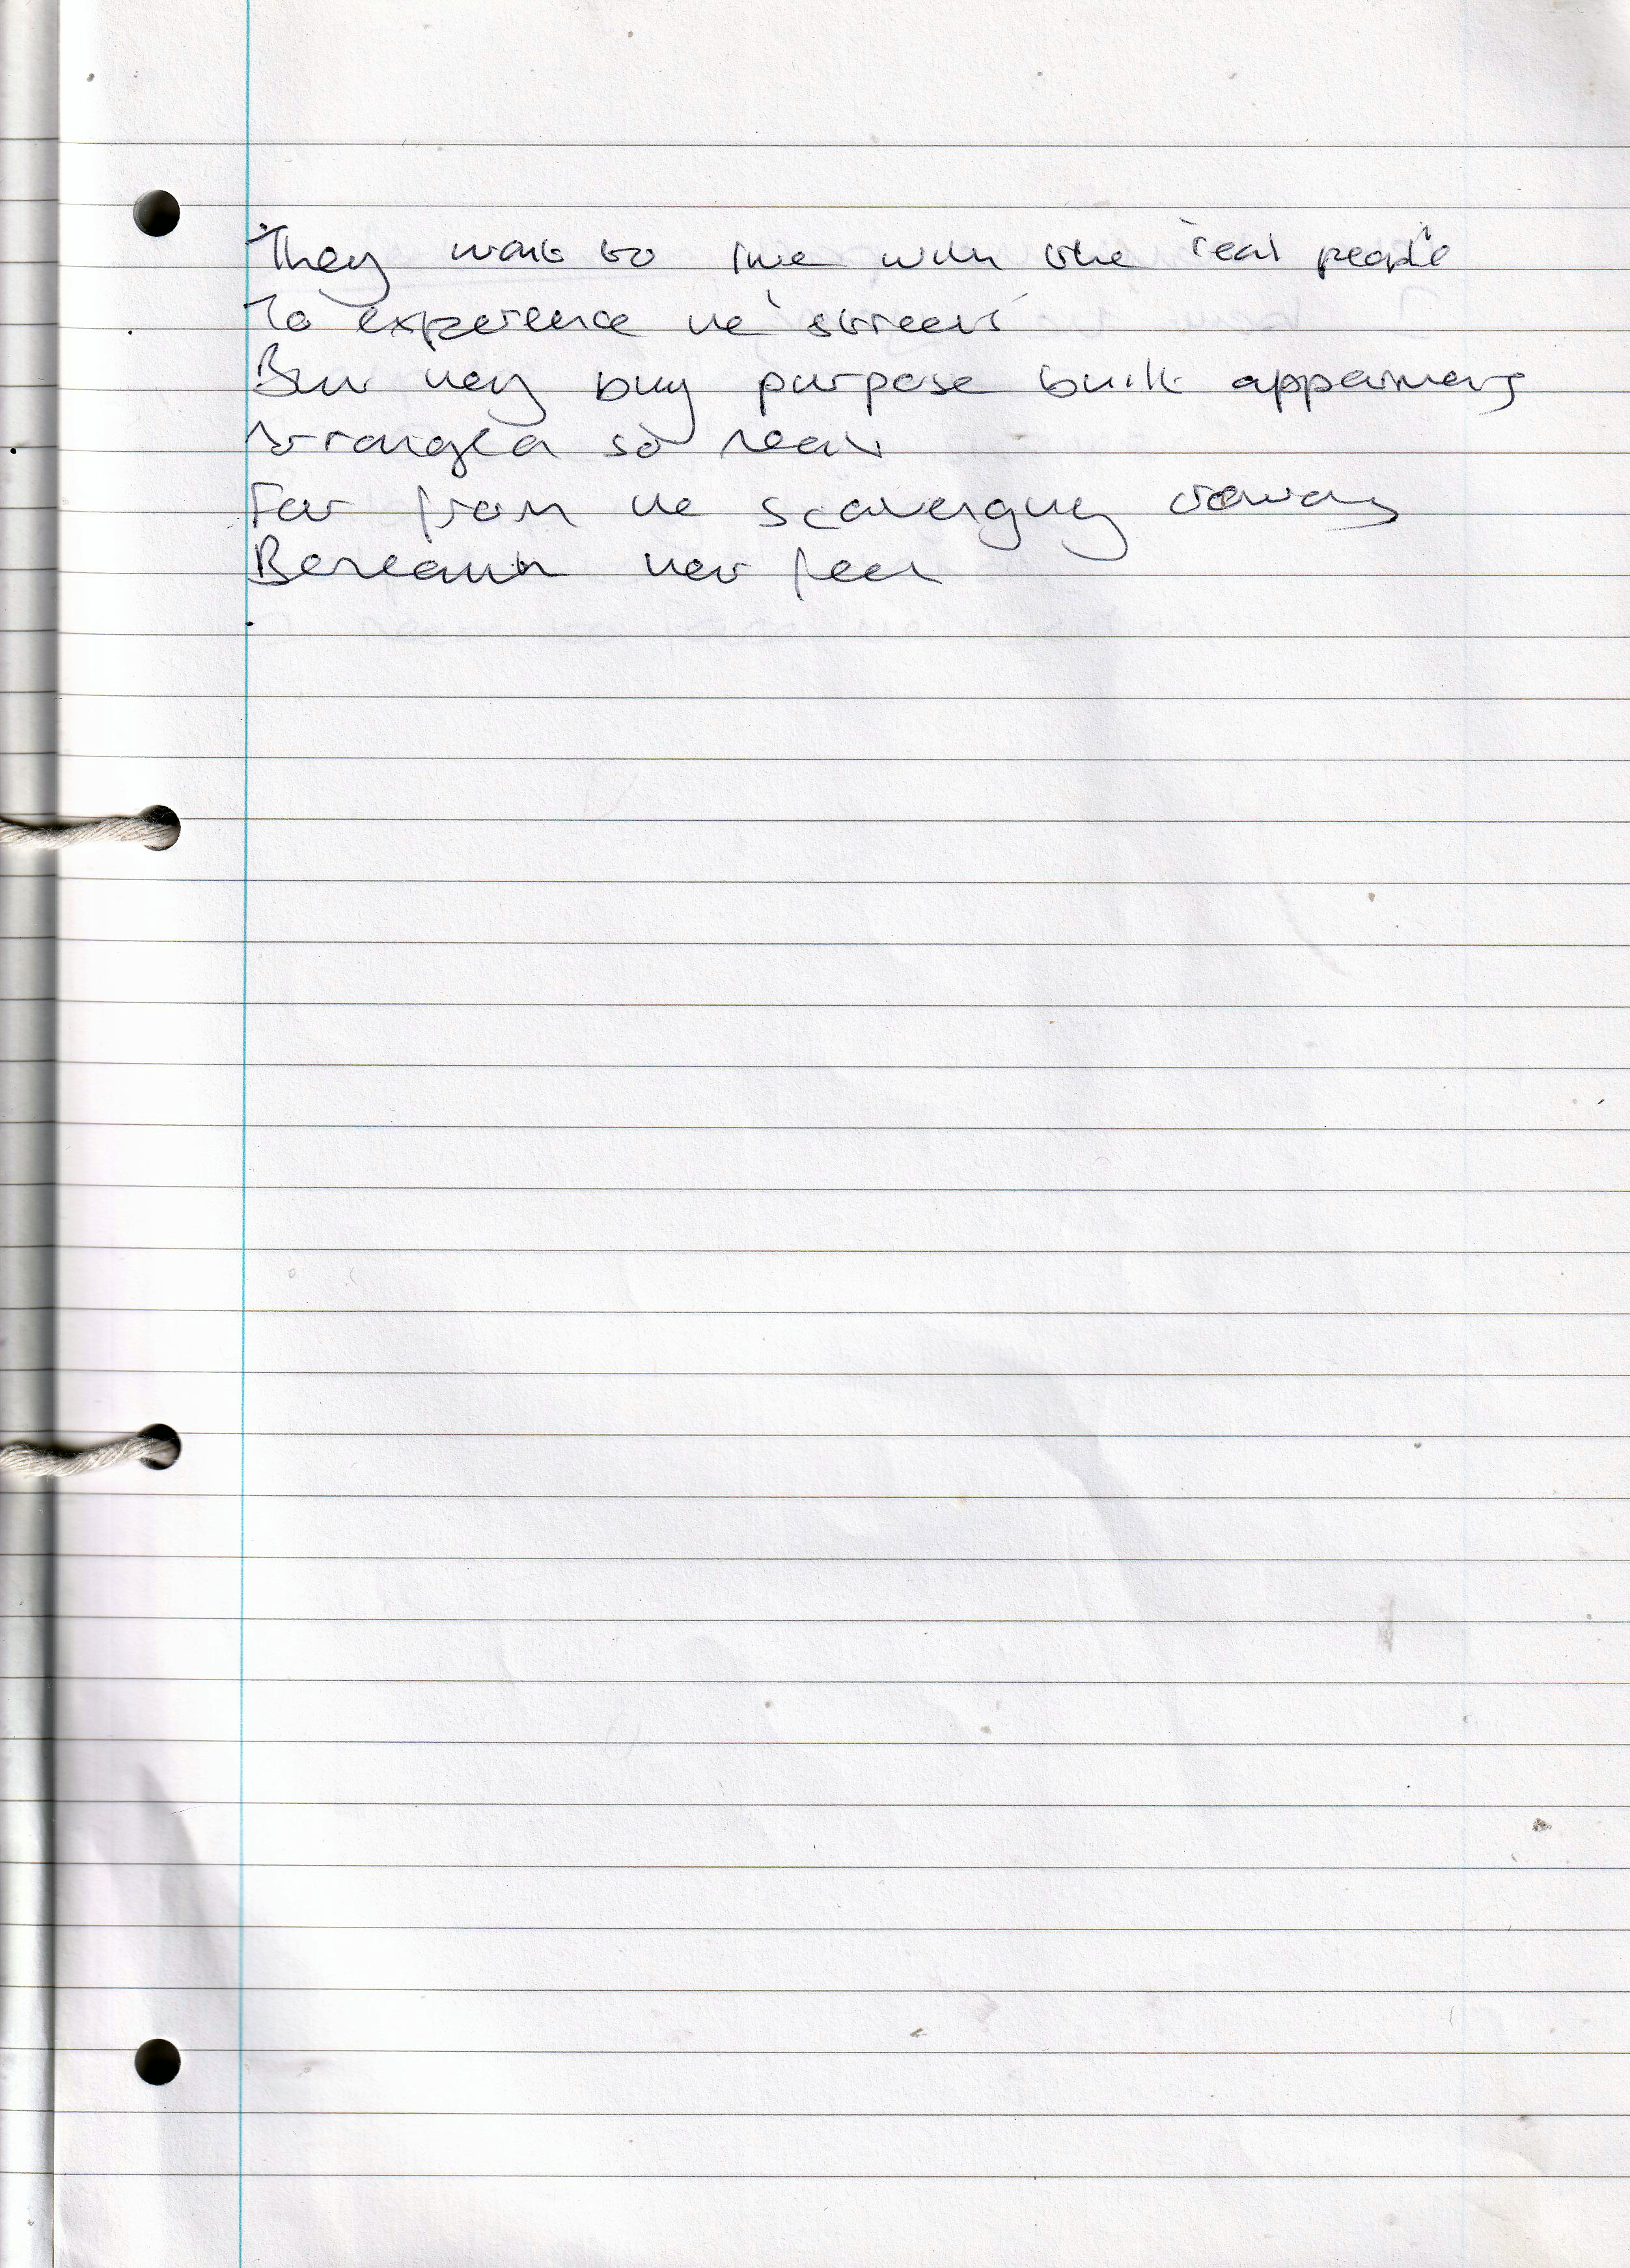 They want to live with the 'real people'
To experience the 'streets'
But they buy purpose built appartments
Strangled so neat
Far from the scavenging
Beneath their feet